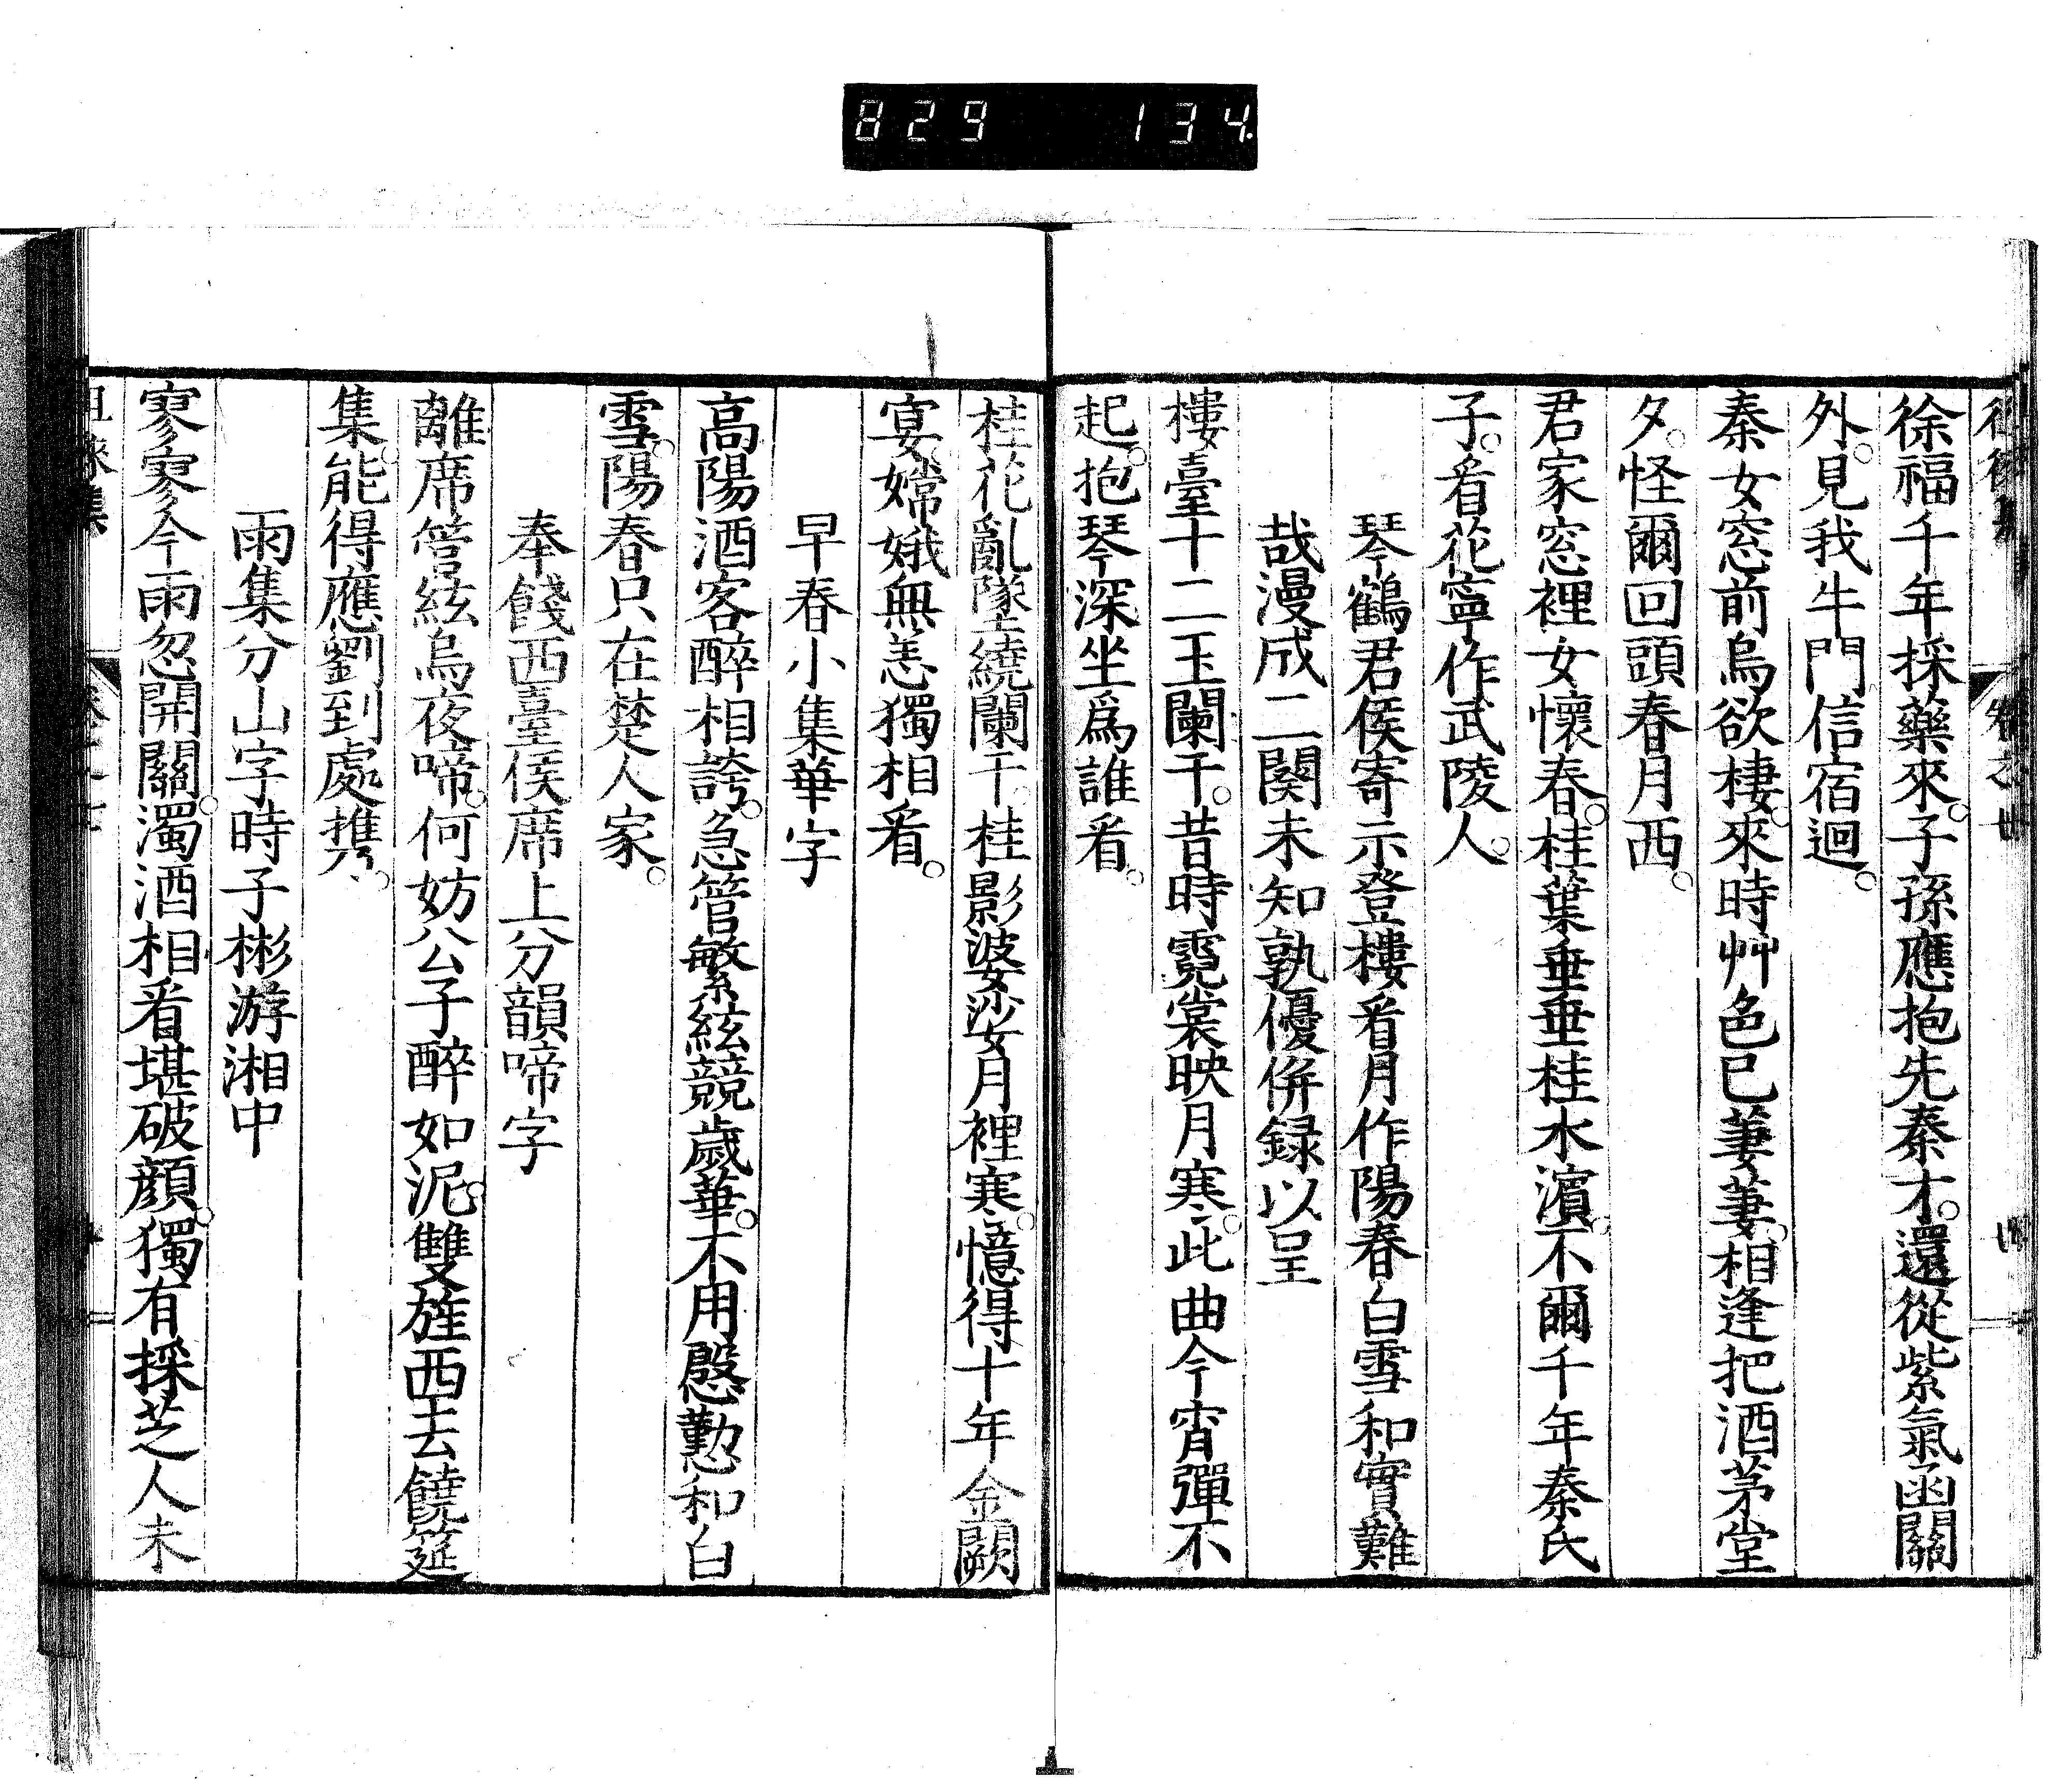 829 134
徐福千年採藥來。子孫應抱先秦才。還從紫氣函關
外。見我牛門信宿迴。
秦女窓前烏欲棲。來時艸色已萋萋。相逢把酒茅堂
夕。怪爾回頭春月西。
君家窓裡女懷春。桂葉垂垂桂水濱。不爾千年秦氏
子。看花寧作武陵人。
琴鶴君侯寄示登樓看月作陽春白雪和實難
哉漫成二闋未知孰優併録以呈
樓臺十二玉闌干。昔時霓裳映月寒。此曲今宵彈不
起。抱琴深坐爲誰看。
桂花亂墜繞闌干。桂影婆娑月裡寒。憶得十年金闕
宴。嫦娥無恙獨相看。
早春小集華字
高陽酒客醉相誇。急管繁絃競歲華。不用慇懃和白
雪。陽春只在楚人家。
奉餞西臺侯席上分韻啼字
離席管絃烏夜啼。何妨公子醉如泥。雙旌西去饒筵
集。能得應劉到處携。
雨集分山字時子彬游湘中
寥寥今雨忽開關。濁酒相看堪破顔。獨有採芝人未